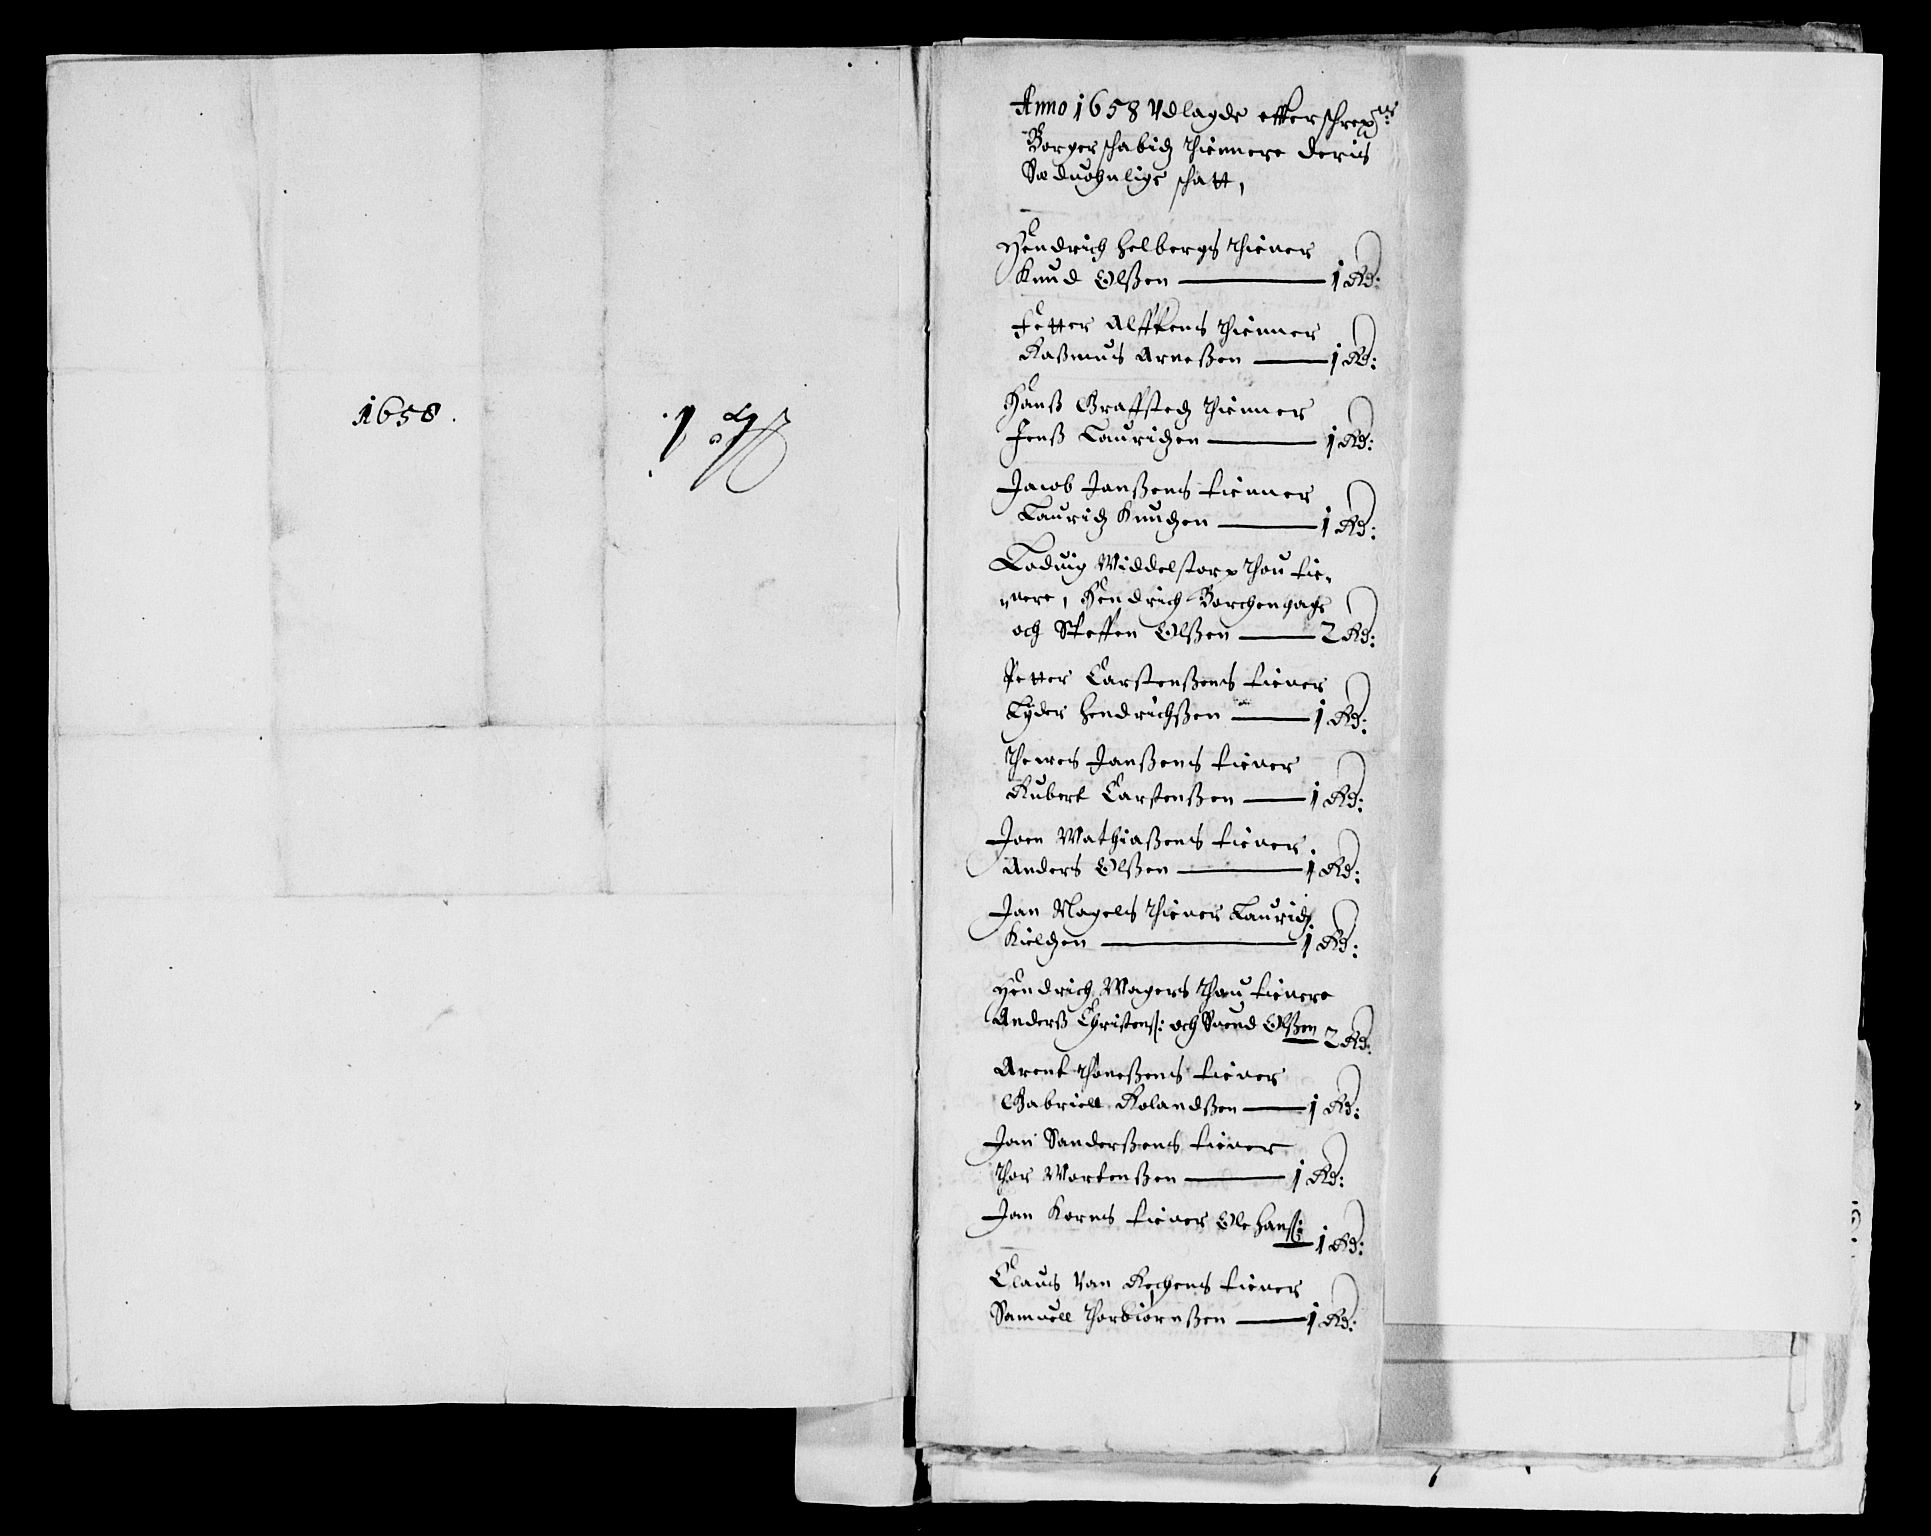 1658.
Anno 1658 Udlagde effterschreffne
Borgerschabitz thiennere deris
Sæduohnlige schatt,
Hendrich Helbergs thiener
Knud Olßen 1 Rd:
Petter Alffkens thienner
Raßmus Arneßen 1 Rd:
Hanß Graffstedz thienner
Jenß Lauridzen 1 Rd:
Jacob Janßens tienner
Lauridz Knudzen 1 Rd:
Lodvig Middelstorp thou tie-
nere, Hendrich Borchenhage
och Steffen Olßen 2 Rd:
Petter Carstenßens tiener
Lyder Hendrichßen 1 Rd:
Thewes Janßens tiener
Rubert Carstenßen 1 Rd:
Joen Mathiaßens tiener
Anders Olßen 1 Rd:
Jan Nagels thiener Lauridz
Kieldzen 1 Rd:
Hendrich Magers thou tienere
Anderß Christens: och Suend Olßen 2 Rd:
Arent Thoneßens tiener
Gabriell Rolandßen 1 Rd:
Jan Sanderßens tiener
Thor Mortenßen 1 Rd:
Jan Korns tiener Ole Hanß: 1 Rd:
Claus Van Rechens tiener
Samuell Thorbiørnßen 1 Rd: